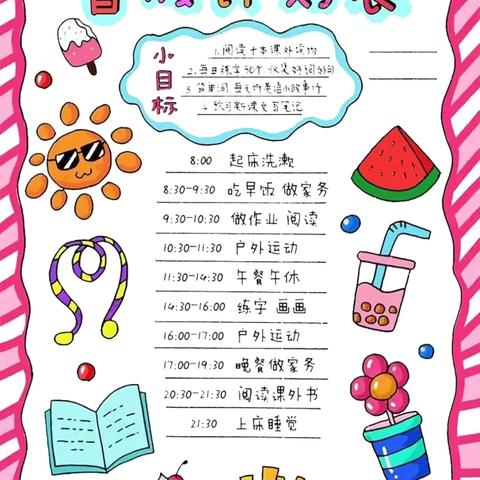 暑假计划表
小目标
1. 阅读十本课外读物
2. 每日练字30个 收集好词好句
3. 背单词 每天听英语小故事1个
4. 预习新课文写笔记
8:00 起床洗漱
8:30-9:30 吃早饭 做家务
9:30-10:30 做作业 阅读
10:30-11:30 户外运动
11:30-14:30 午餐午休
14:30-16:00 练字 画画
16:00-17:00 户外运动
17:00-19:30 晚餐做家务
20:30-21:30 阅读课外书
21:30 上床睡觉